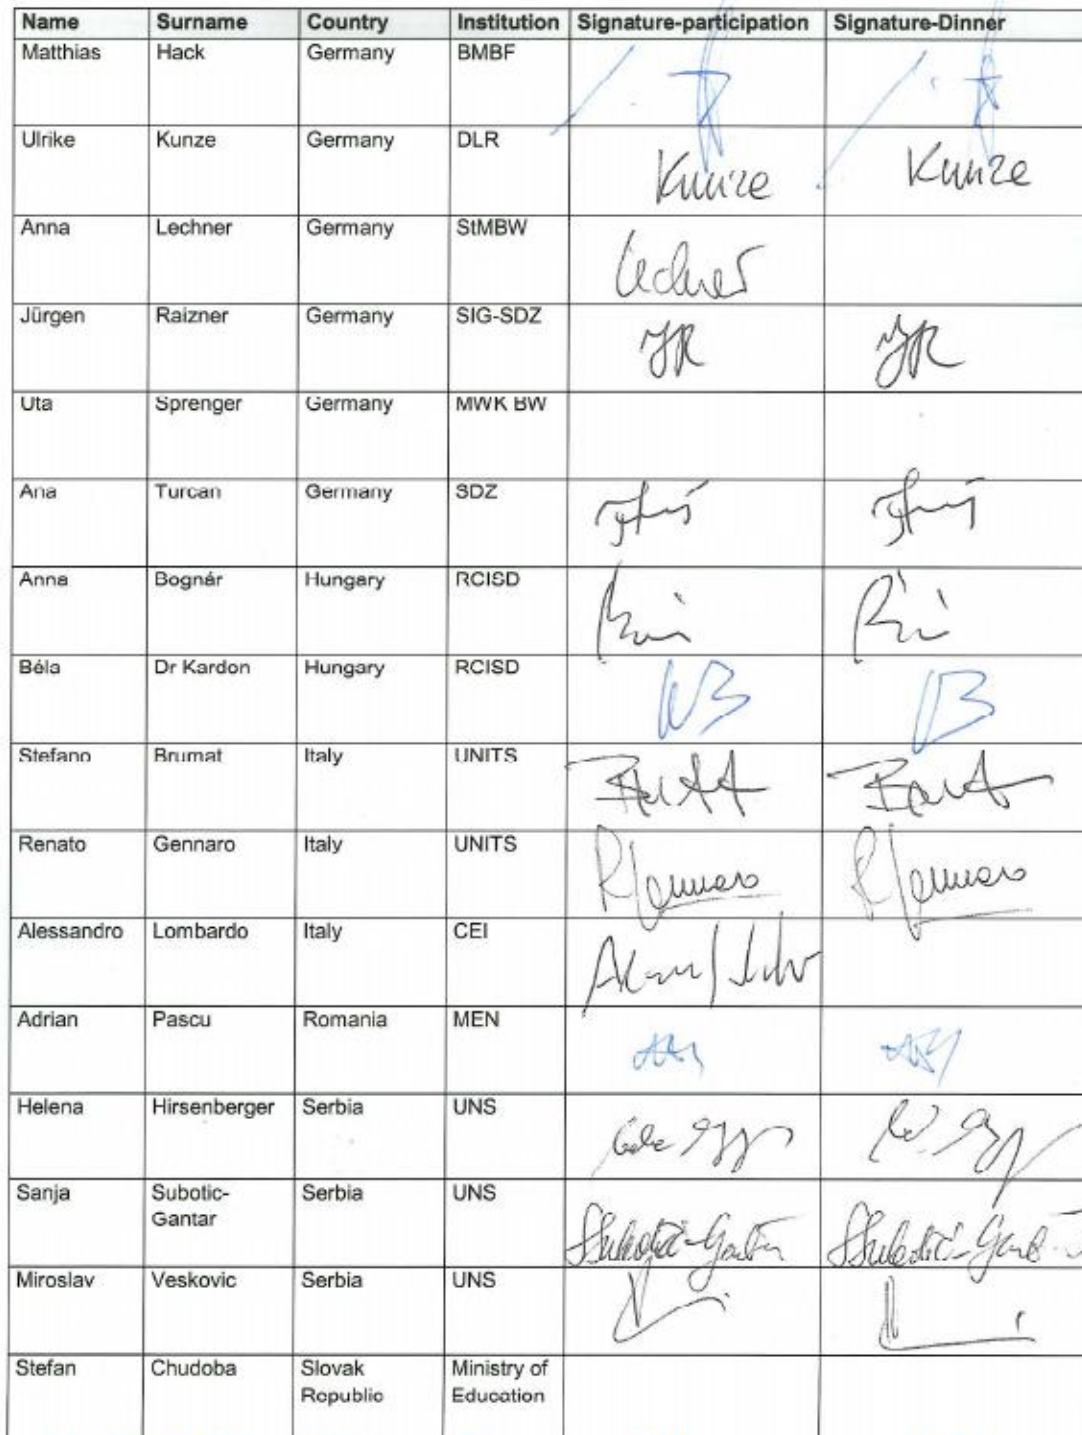 Name Surname Country Institution Signature-participation Signature-Dinner
Matthias Hack Germany BMBF
Ulrike Kunze Germany DLR Kunze Kunze
Anna Lechner Germany StMBW Lechner
Jürgen Raizner Germany SIG-SDZ JR JR
Uta Sprenger Germany MWK BW
Ana Turcan Germany SDZ
Anna Bognár Hungary RCISD
Béla Dr Kardon Hungary RCISD
Stefano Brumat Italy UNITS
Renato Gennaro Italy UNITS RGennaro RGennaro
Alessandro Lombardo Italy CEI
Adrian Pascu Romania MEN
Helena Hirsenberger Serbia UNS
Sanja Subotic- Serbia UNS
Gantar
Miroslav Veskovic Serbia UNS
Stefan Chudoba Slovak Ministry of
Republic Education